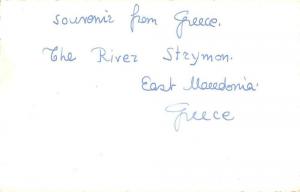 Souvenir from Greece.
The River Strymon.
East Macedonia.
Greece